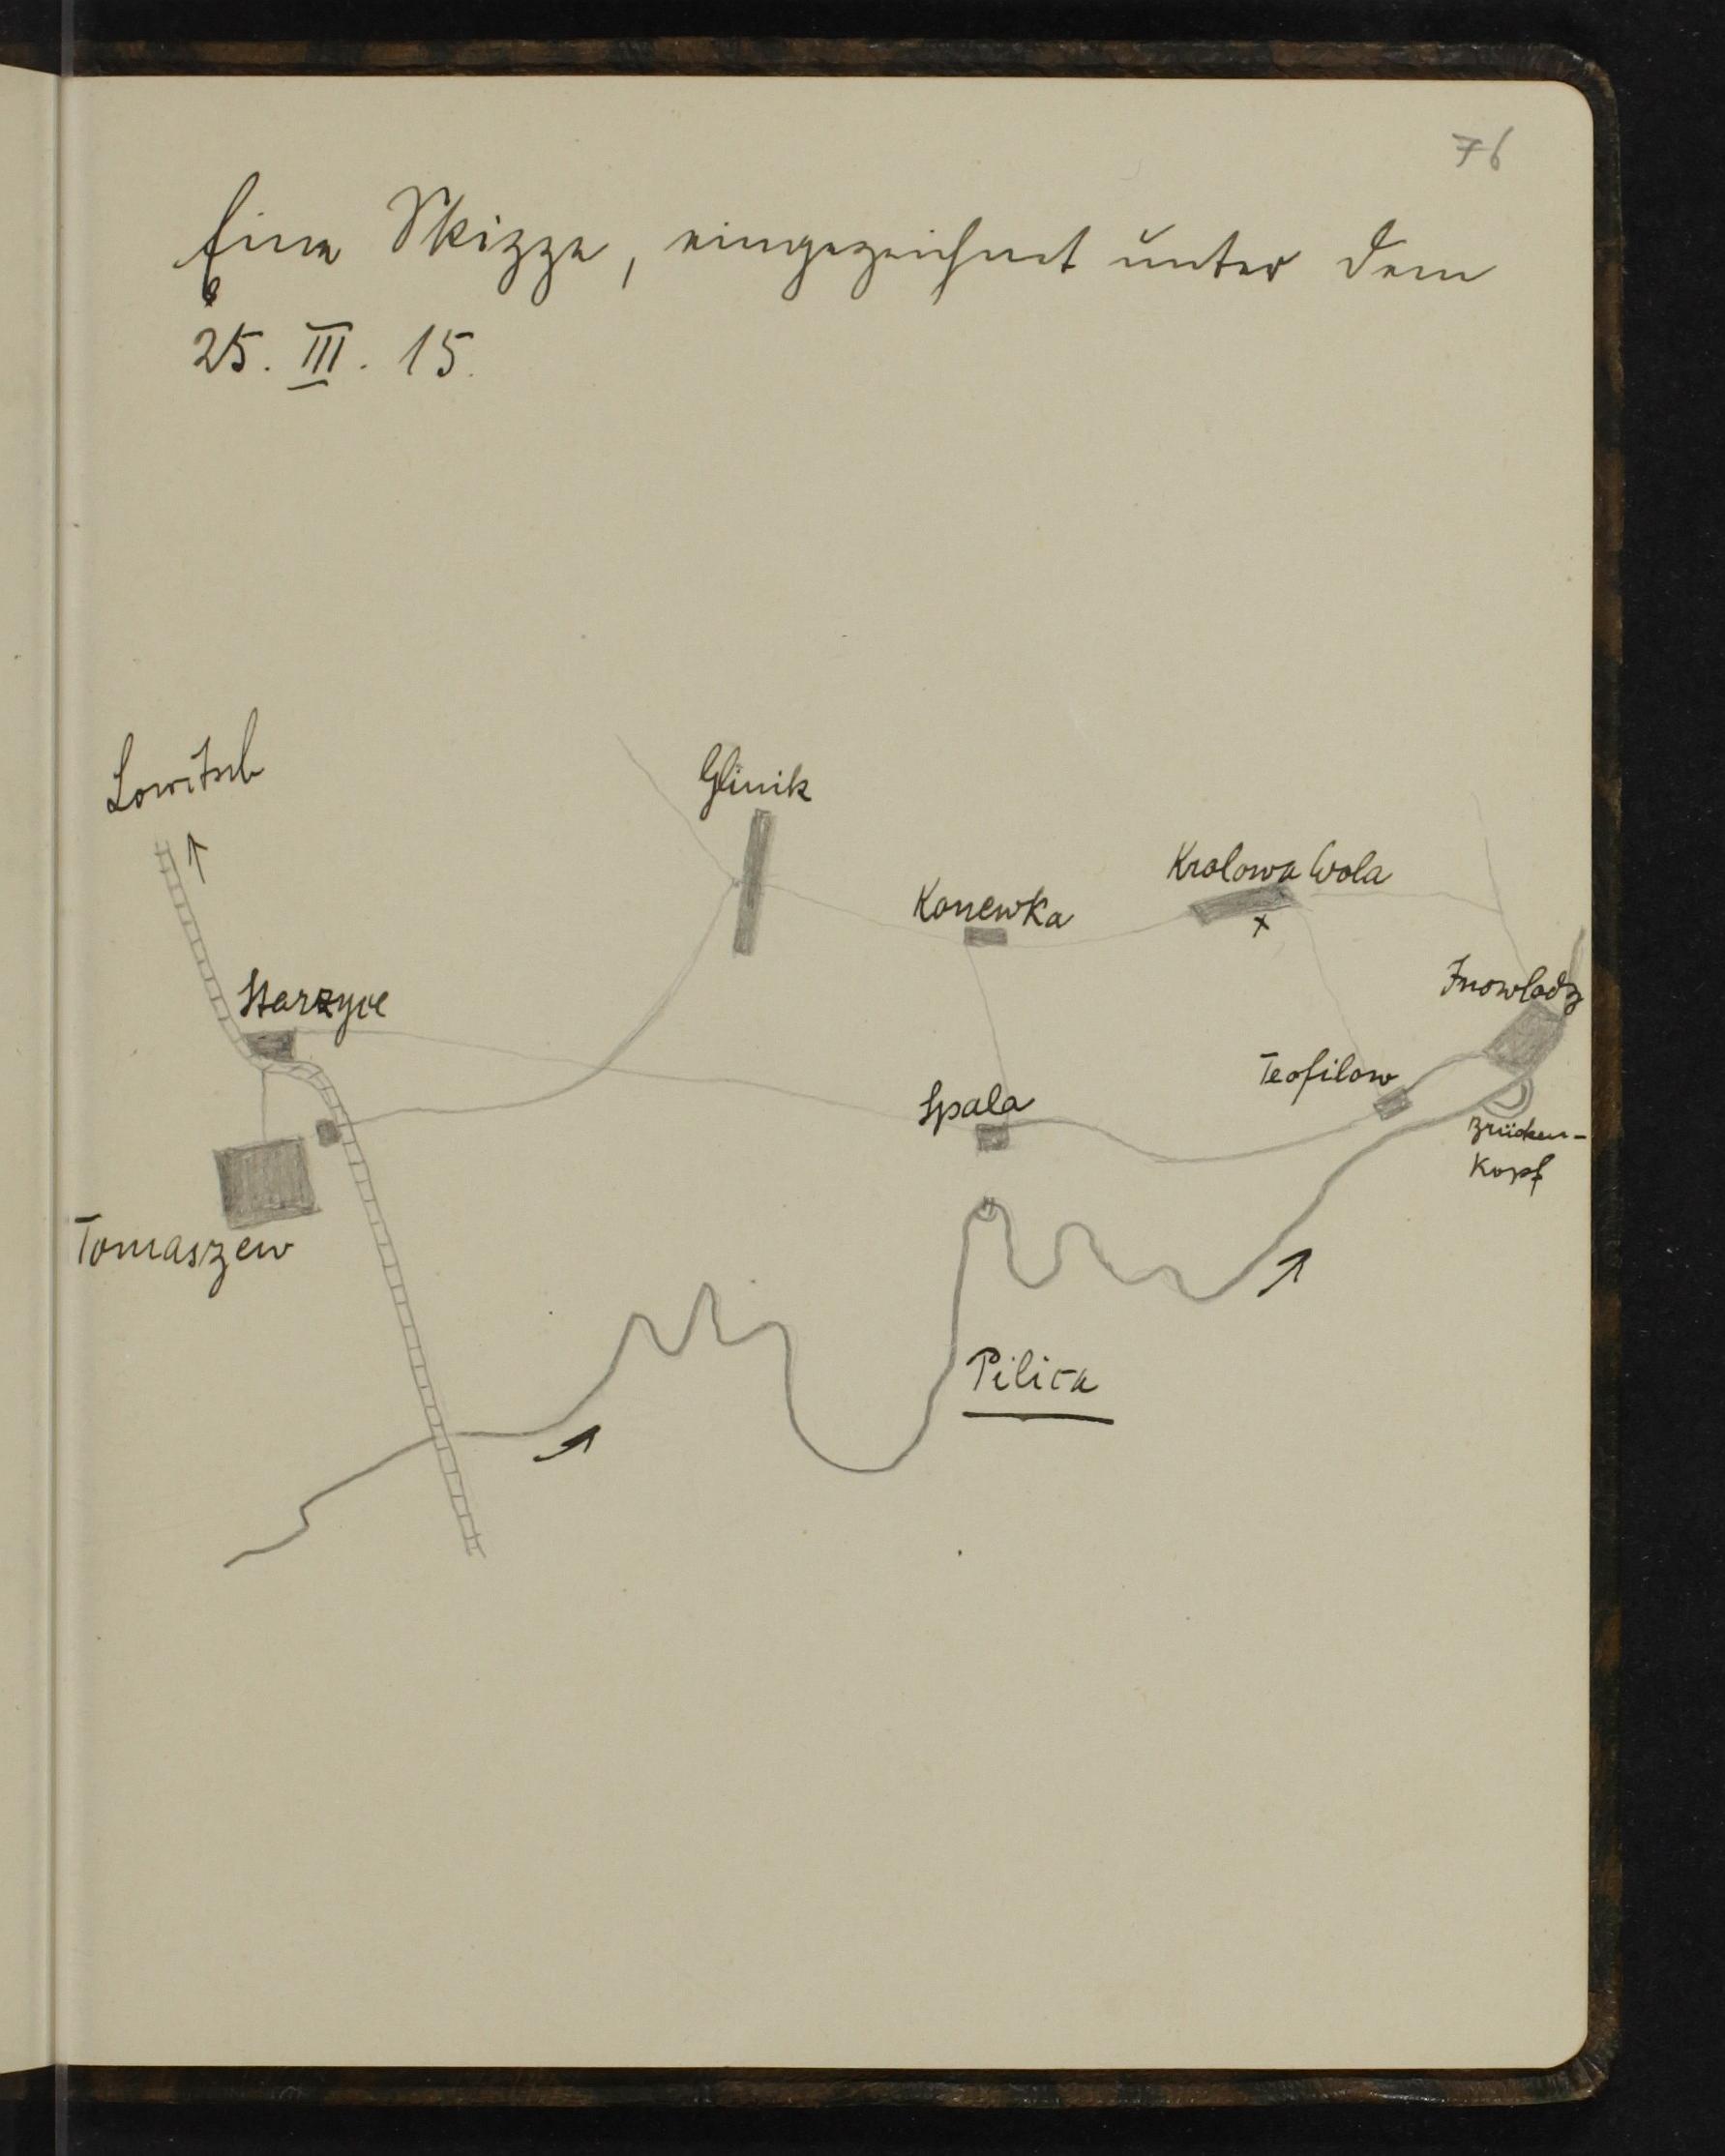 76
Eine Skizze, eingezeichnet unter dem
25. III. 15.
Lowitsch
Glinik
Krolowa Wola
Konewka
x
Starzyce
Inowlodz
Teofilow
Spala
Brücken-
Kopf
Tomaszew
Pilica